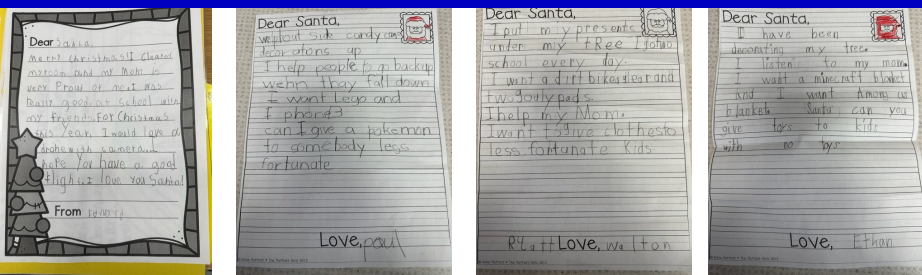 Dear Santa,
Merry Christmas! I cleaned
my room and my Mom is
very Proud of me. I was
really good at school with
my friends. For Christmas
this year, I would love a
drone with a camera.
hope you have a good
flight. I love you Santa!
From
Dear Santa,
we put out side candy can
decorations up
I help people to go back up
wehn thay fall down
I want Lego and
I phone
can I give a pokemon
to somebody less
fortunate
Love, paul
Dear Santa,
I put my presents
under my tRee I go two
school every day.
I want a dirt bike gear and
two goaly pads.
I help my Mom.
I want to give clothes to
less fortunate kids
Love, walton
Dear Santa,
I have been
decorating my tree.
I listen to my mom.
I want a minecraft blanket
and I want Among us
blanket. Santa can you
give toys to kids
with no toys
Love, Ethan